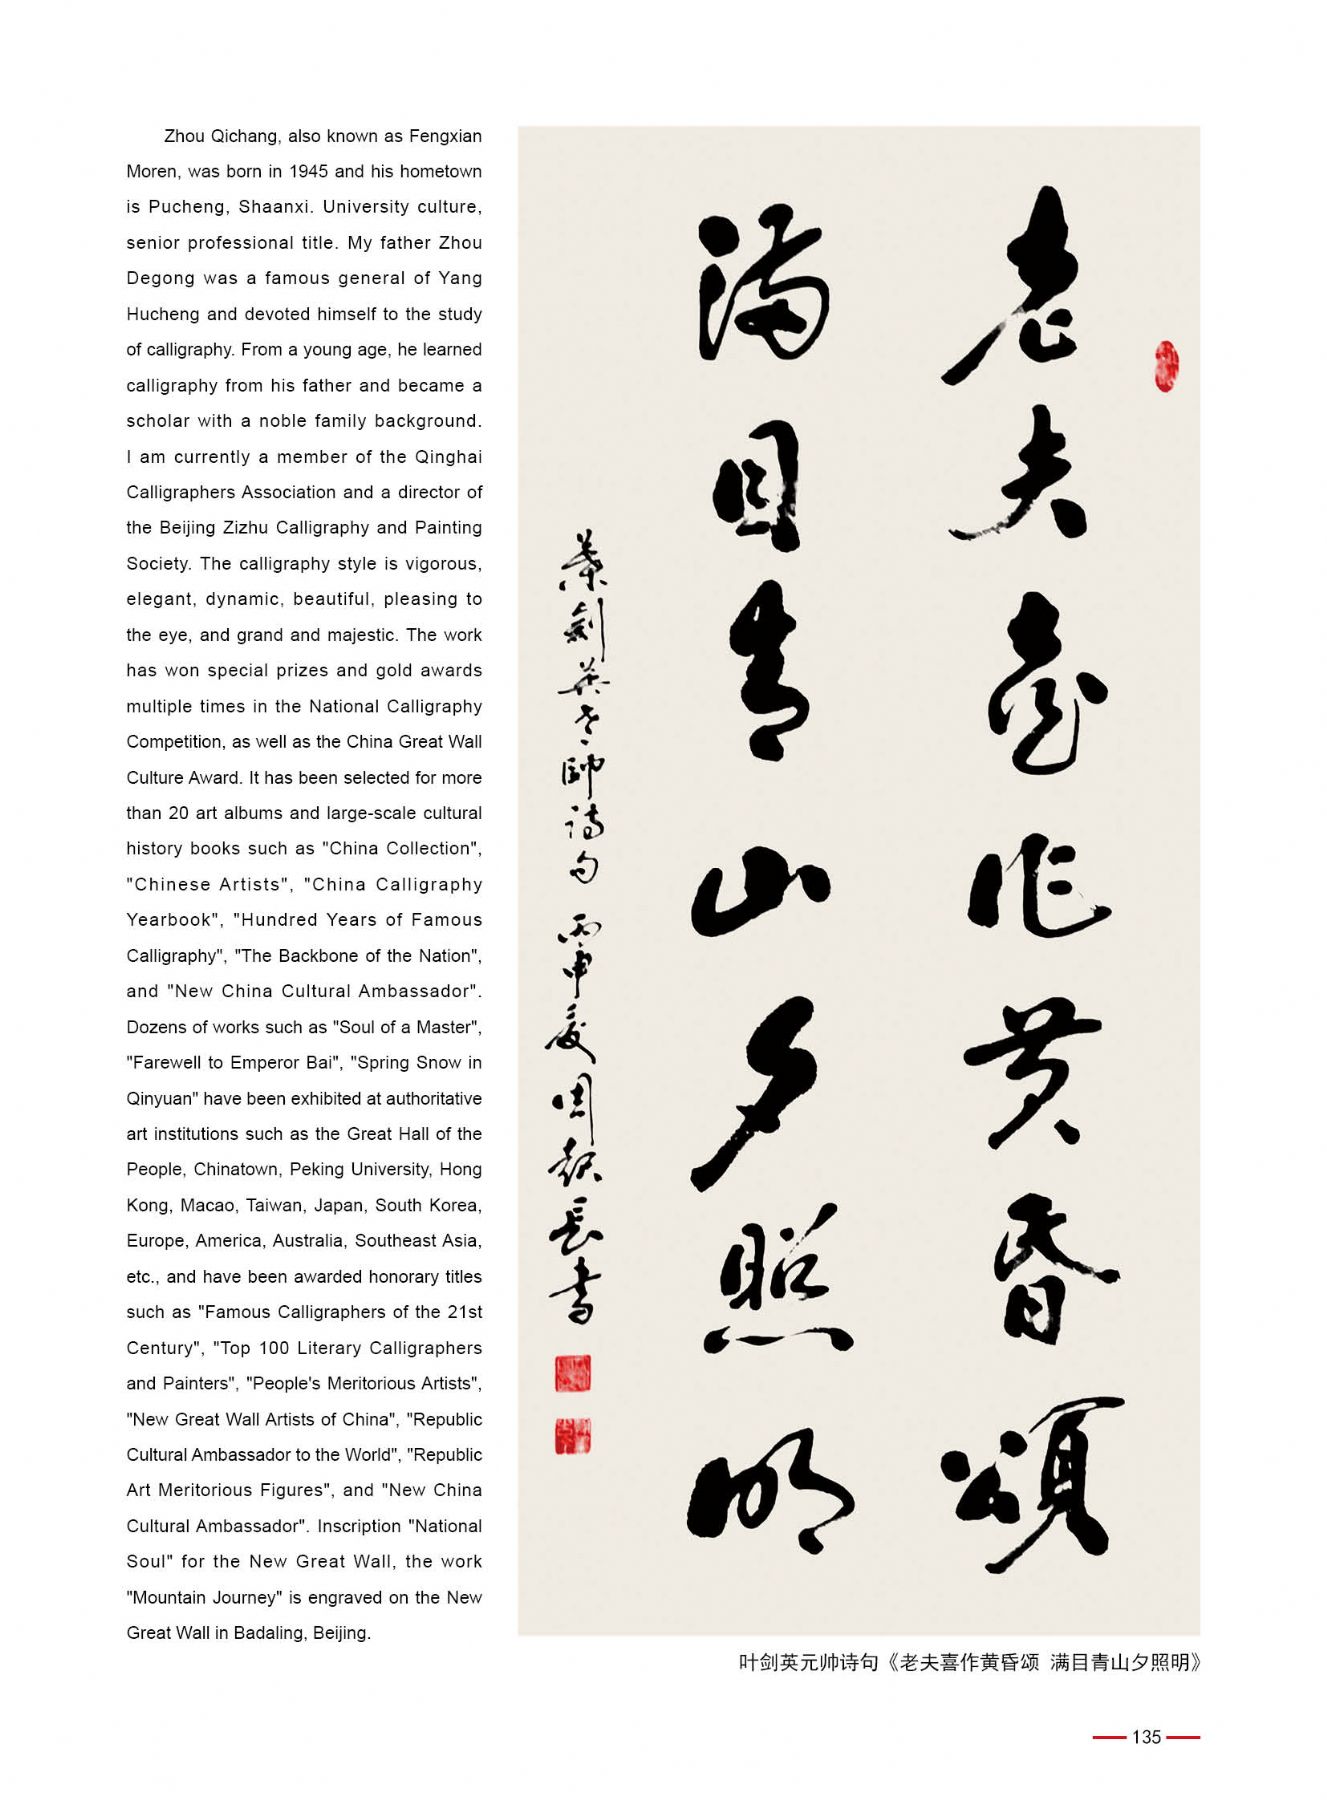 Zhou Qichang, also known as Fengxian
Moren, was born in 1945 and his hometown
is Pucheng, Shaanxi. University culture,
senior professional title. My father Zhou
Degong was a famous general of Yang
Hucheng and devoted himself to the study
of calligraphy. From a young age, he learned
calligraphy from his father and became a
scholar with a noble family background.
I am currently a member of the Qinghai
Calligraphers Association and a director of
the Beijing Zizhu Calligraphy and Painting
Society. The calligraphy style is vigorous,
elegant, dynamic, beautiful, pleasing to
the eye, and grand and majestic. The work
has won special prizes and gold awards
multiple times in the National Calligraphy
Competition, as well as the China Great Wall
Culture Award. It has been selected for more
than 20 art albums and large-scale cultural
history books such as "China Collection",
"Chinese Artists", "China Calligraphy
Yearbook", "Hundred Years of Famous
Calligraphy", "The Backbone of the Nation",
and "New China Cultural Ambassador".
Dozens of works such as "Soul of a Master",
"Farewell to Emperor Bai", "Spring Snow in
Qinyuan" have been exhibited at authoritative
art institutions such as the Great Hall of the
People, Chinatown, Peking University, Hong
Kong, Macao, Taiwan, Japan, South Korea,
Europe, America, Australia, Southeast Asia,
etc., and have been awarded honorary titles
such as "Famous Calligraphers of the 21st
Century", "Top 100 Literary Calligraphers
and Painters", "People's Meritorious Artists",
"New Great Wall Artists of China", "Republic
Cultural Ambassador to the World", "Republic
Art Meritorious Figures", and "New China
Cultural Ambassador". Inscription "National
Soul" for the New Great Wall, the work
"Mountain Journey" is engraved on the New
Great Wall in Badaling, Beijing.
老夫喜作黄昏颂
满目青山夕照明
葉劍英元帥诗句 丙申夏周啟長书
叶剑英元帅诗句《老夫喜作黄昏颂 满目青山夕照明》
135